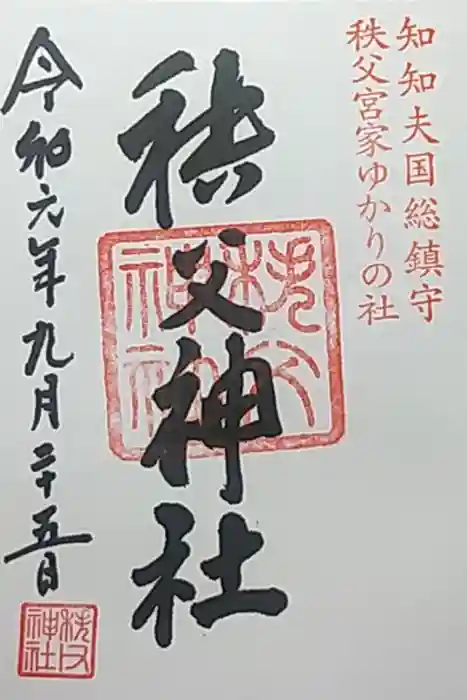 知知夫国総鎮守
秩父宮家ゆかりの社
秩父神社
秩父
神社
令和六年九月二十五日
秩父
神社